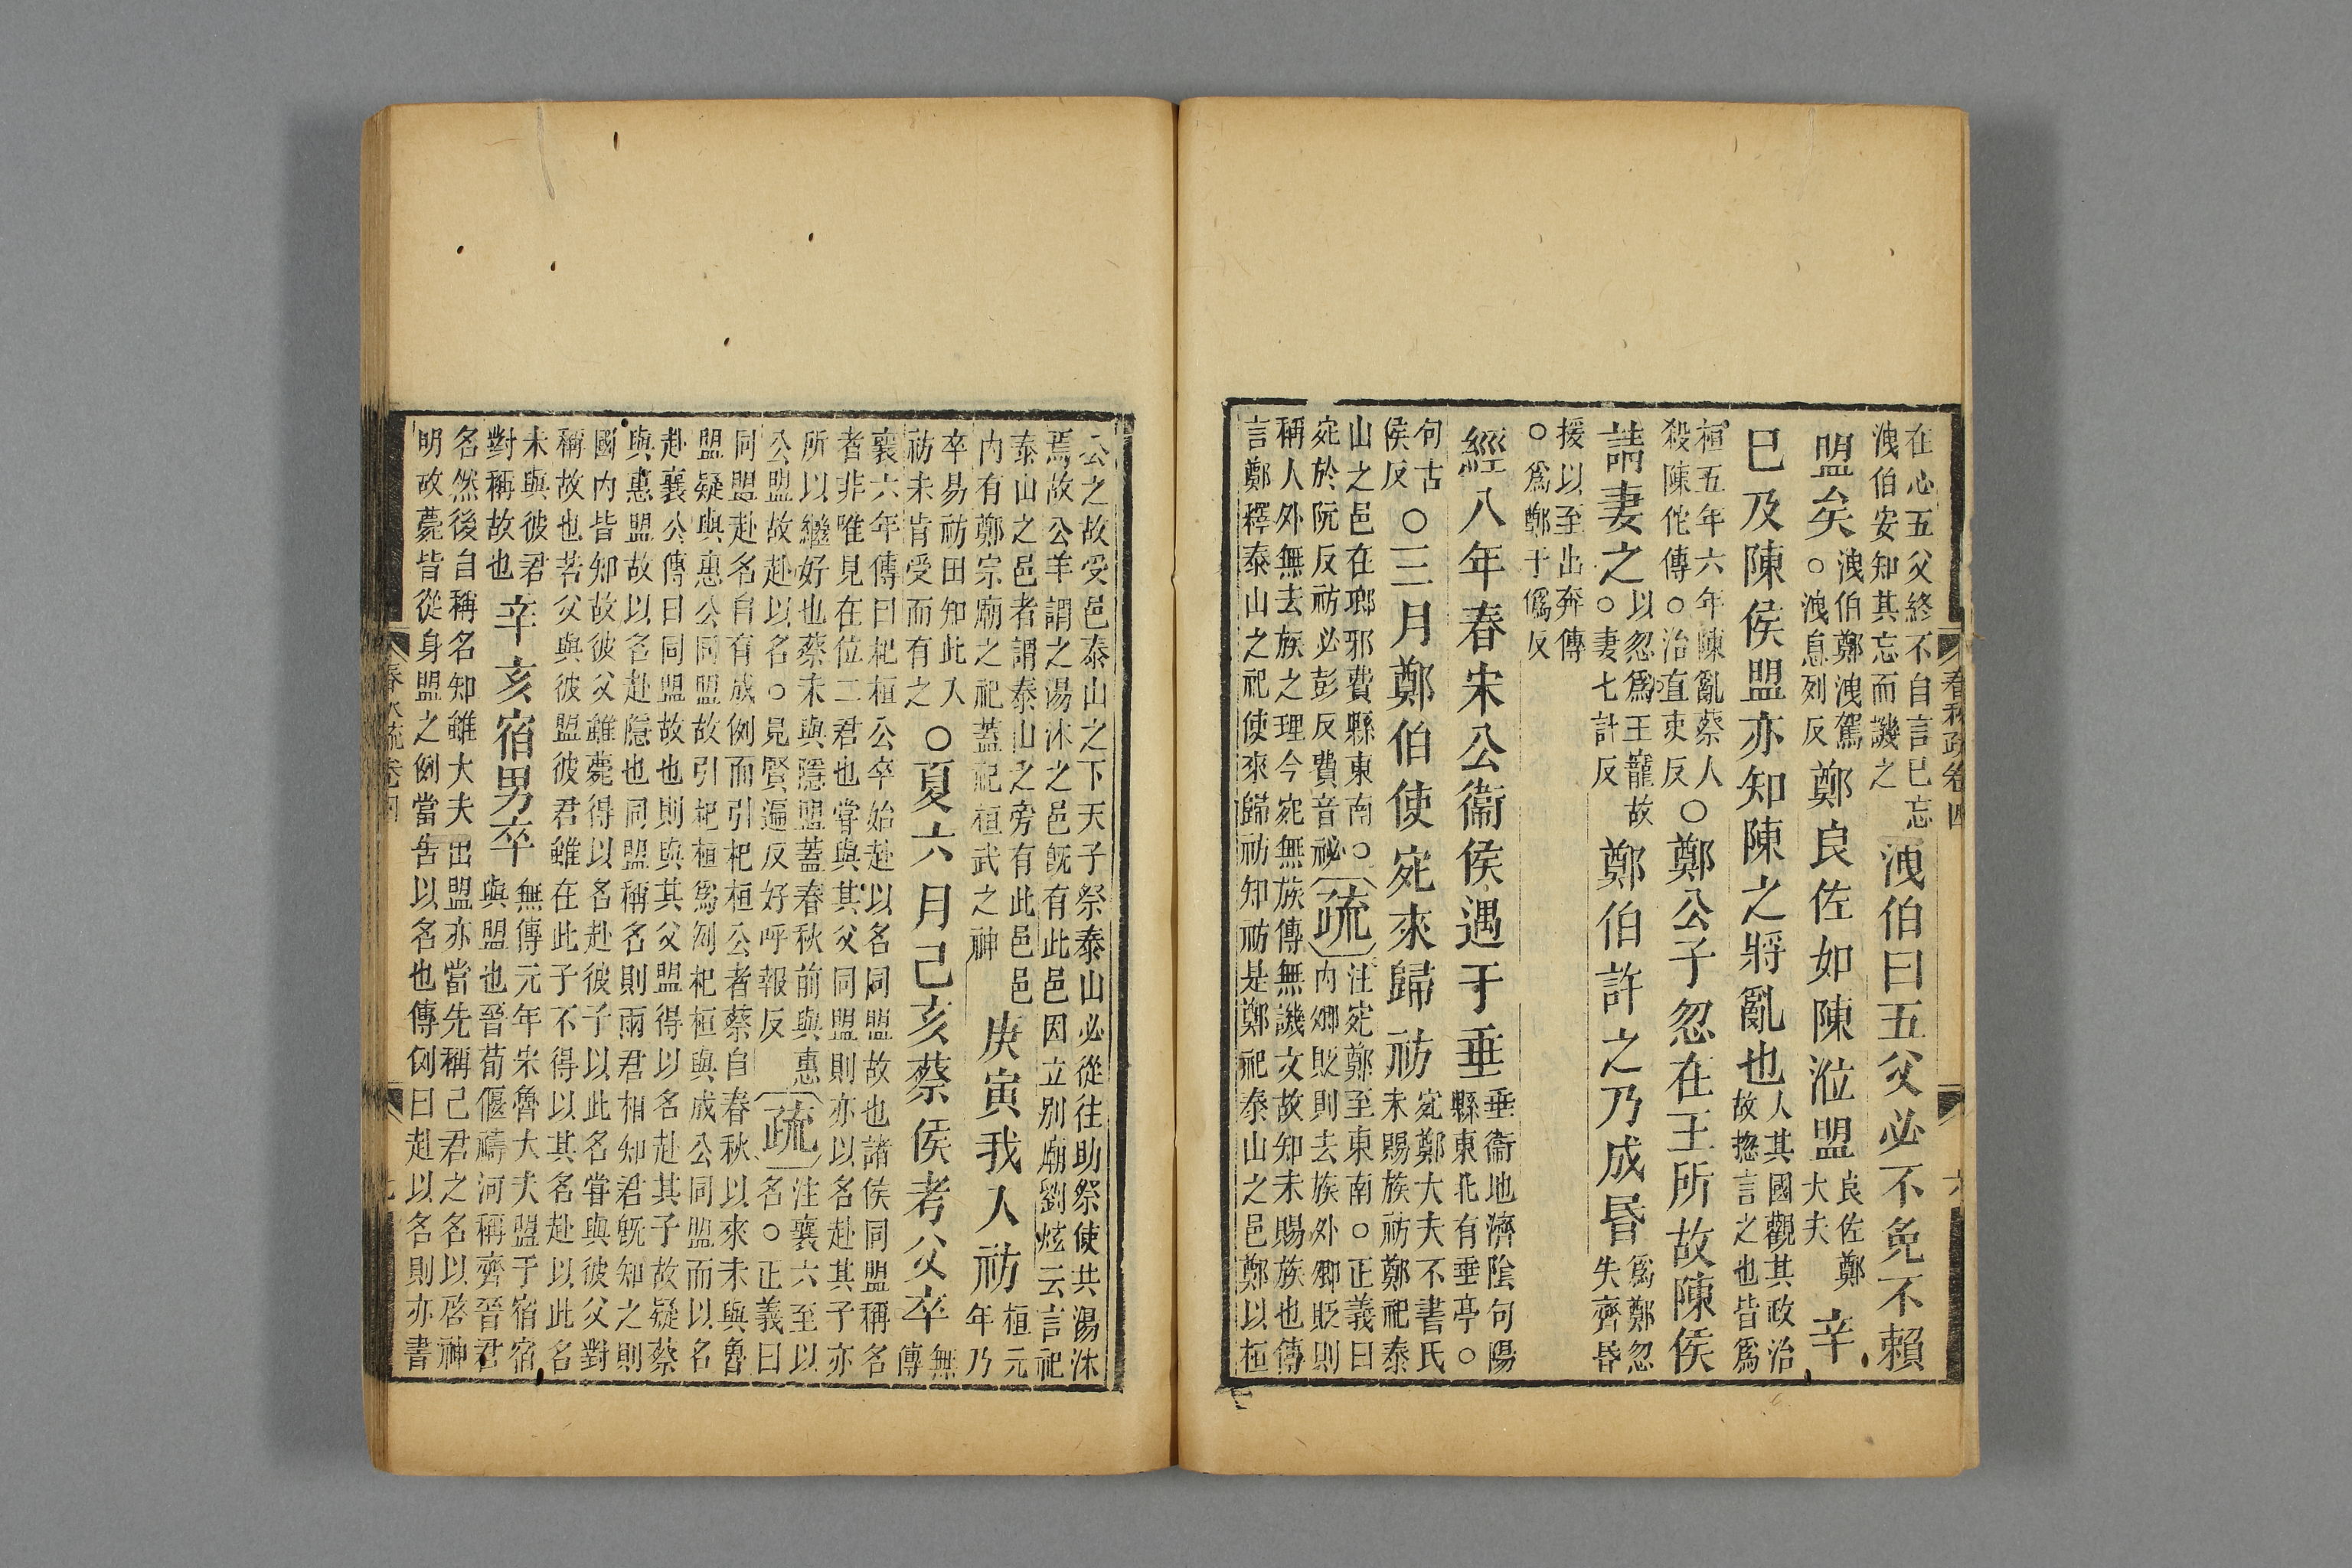 在心五父終不自言已忘
洩伯安知其忘而譏之
洩伯曰五父必不免不賴
盟矣
洩伯鄭洩駕
○洩息列反
鄭良佐如陳涖盟
良佐鄭
大夫
辛
巳及陳侯盟亦知陳之將亂也
人其國觀其政治
故揔言之也皆爲
桓五年六年陳亂蔡人
殺陳佗傳○治直吏反
○鄭公子忽在王所故陳侯
請妻之
以忽爲王寵故
○妻七計反
鄭伯許之乃成昏
爲鄭忽
失齊昏
援以至出奔傳
○爲鄭于僞反
經八年春宋公衞侯遇于垂
垂衞地濟陰句陽
縣東北有垂亭○
句古
侯反
○三月鄭伯使宛來歸祊
宛鄭大夫不書氏
未賜族祊鄭祀泰
山之邑在瑯邪費縣東南○
宛於阮反祊必彭反費音祕
疏
注宛鄭至東南○正義曰
内卿貶則去族外卿貶則
稱人外無去族之理今宛無族傳無譏文故知未賜族也傳
言鄭釋泰山之祀使來歸祊知祊是鄭祀泰山之邑鄭以桓
公之故受邑泰山之下天子祭泰山必從往助祭使共湯沐
焉故公羊謂之湯沐之邑旣有此邑因立别廟劉炫云言祀
泰山之邑者謂泰山之旁有此邑邑
内有鄭宗廟之祀蓋祀桓武之神
庚寅我入祊
桓元
年乃
卒易祊田知此入
祊未肯受而有之
○夏六月己亥蔡侯考父卒
無
傳
襄六年傳曰杞桓公卒始赴以名同盟故也諸侯同盟稱名
者非唯見在位二君也嘗與其父同盟則亦以名赴其子亦
所以繼好也蔡未與隱盟蓋春秋前與惠
公盟故赴以名○見賢遍反好呼報反
疏
注襄六至以
名○正義曰
同盟赴名自有成例而引杞桓公者蔡自春秋以來未與魯
盟疑與惠公同盟故引杞桓爲例杞桓與成公同盟而以名
赴襄公傳曰同盟故也則與其父盟得以名赴其子故疑蔡
與惠盟故以名赴隱也同盟稱名則兩君相知君旣知之則
國内皆知故彼父雖薨得以名赴彼子以此名嘗與彼父對
稱故也若父與彼盟彼君雖在此子不得以其名赴以此名
未與彼君
對稱故也
辛亥宿男卒
無傳元年宋魯大夫盟于宿宿
與盟也晉荀偃禱河稱齊晉君
名然後自稱名知雖大夫出盟亦當先稱己君之名以啓神
明故薨皆從身盟之例當告以名也傳例曰赴以名則亦書